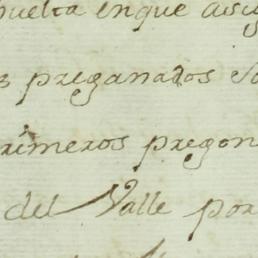 buelta en que asig
s preganados so
rimeros pregon
del Valle por